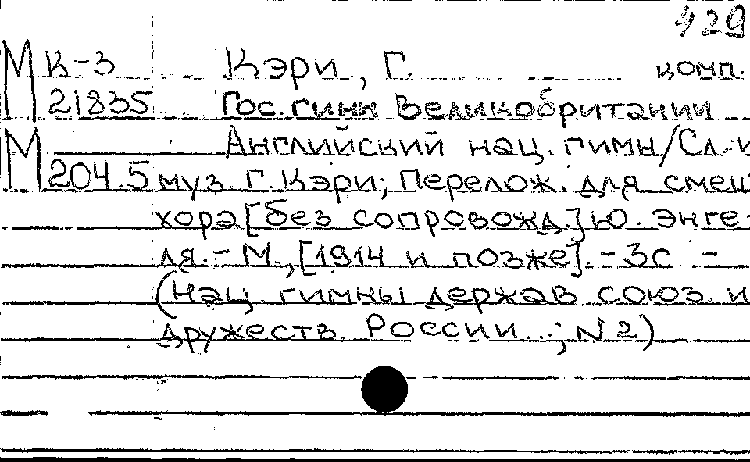 429
М К-3 Кэри, Г. комп.
21835 Гос. гимн Великобритании
М Английский нац. гимн/Сл. и
204.5 муз. Г. Кэри; Перелож. для смеш.
хора [без сопровожд.] Ю. Энге-
ля. - М., [1914 и позже]. - 3с -
(Нац гимны держав союз. и
дружеств. России...; N2)